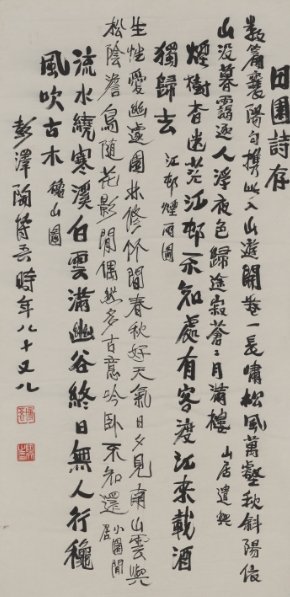 田園詩存
數篇襄陽句携此入山遊開卷一長嘯松風萬壑秋斜陽依
山沒暮靄逐人浮夜色歸途寂蒼蒼月滿樓 山居遣興
煙樹杳迷茫江邨不知處有客渡江來載酒
獨歸去 江邨煙雨圖
生性愛幽邃園林修竹間春秋好天氣日夕見南山雲與
松陰澹鳥隨花影閒偶然多古意吟卧不知還 小園閒居
流水繞寒溪白雲滿幽谷終日無人行穐
風吹古木 穐山圖
彭澤陶 吾時年八十又八